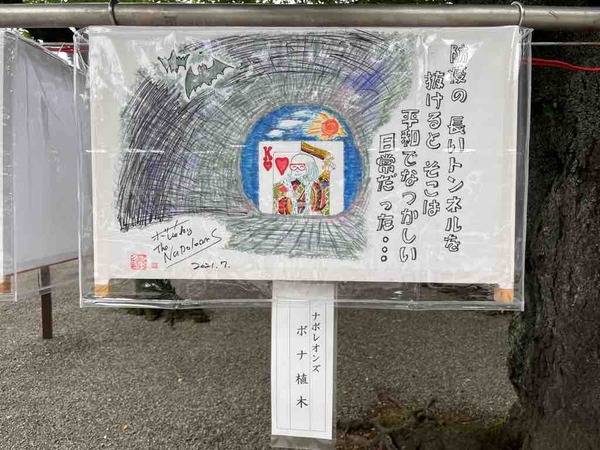 防疫の 長いトンネルを
抜けると そこは
平和でなつかしい
日常だった・・・
K
The Napoleons
2021.7.
ナポレオンズ
ボナ植木